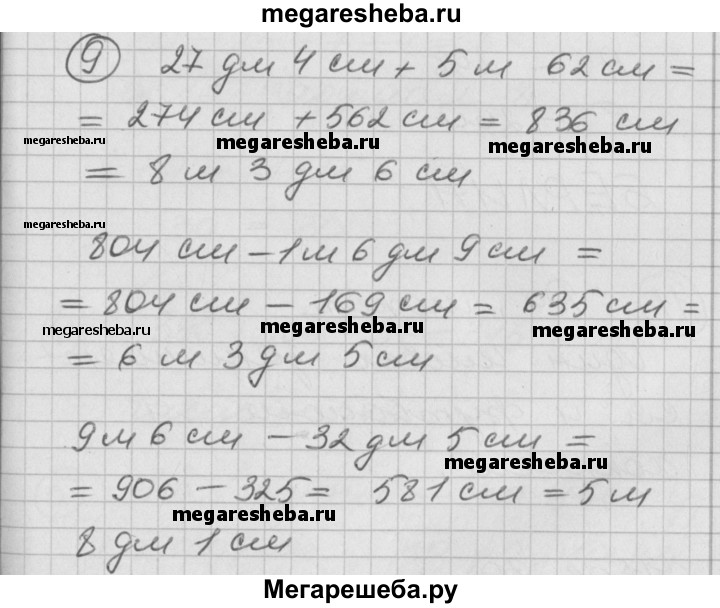 megaresheba.ru
9 27 дм 4 см + 5 м 62 см =
= 274 см + 562 см = 836 см
megaresheba.ru megaresheba.ru megaresheba.ru
= 8 м 3 дм 6 см
megaresheba.ru
804 см – 1 м 6 дм 9 см =
= 804 см – 169 см = 635 см =
megaresheba.ru megaresheba.ru megaresheba.ru
= 6 м 3 дм 5 см
9 м 6 см – 32 дм 5 см =
megaresheba.ru
= 906 – 325 = 581 см = 5 м
megaresheba.ru
8 дм 1 см
Мегарешеба.ру